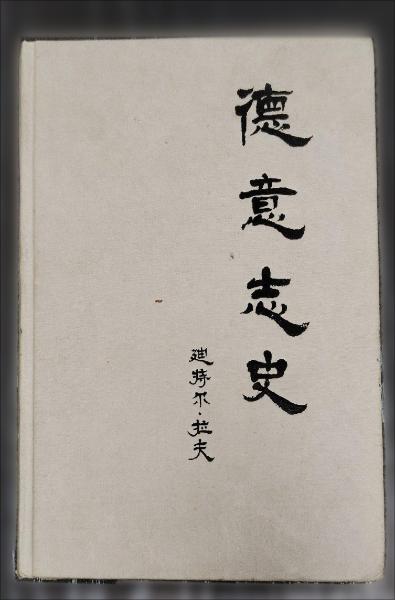 德意志史
迪特尔·拉夫